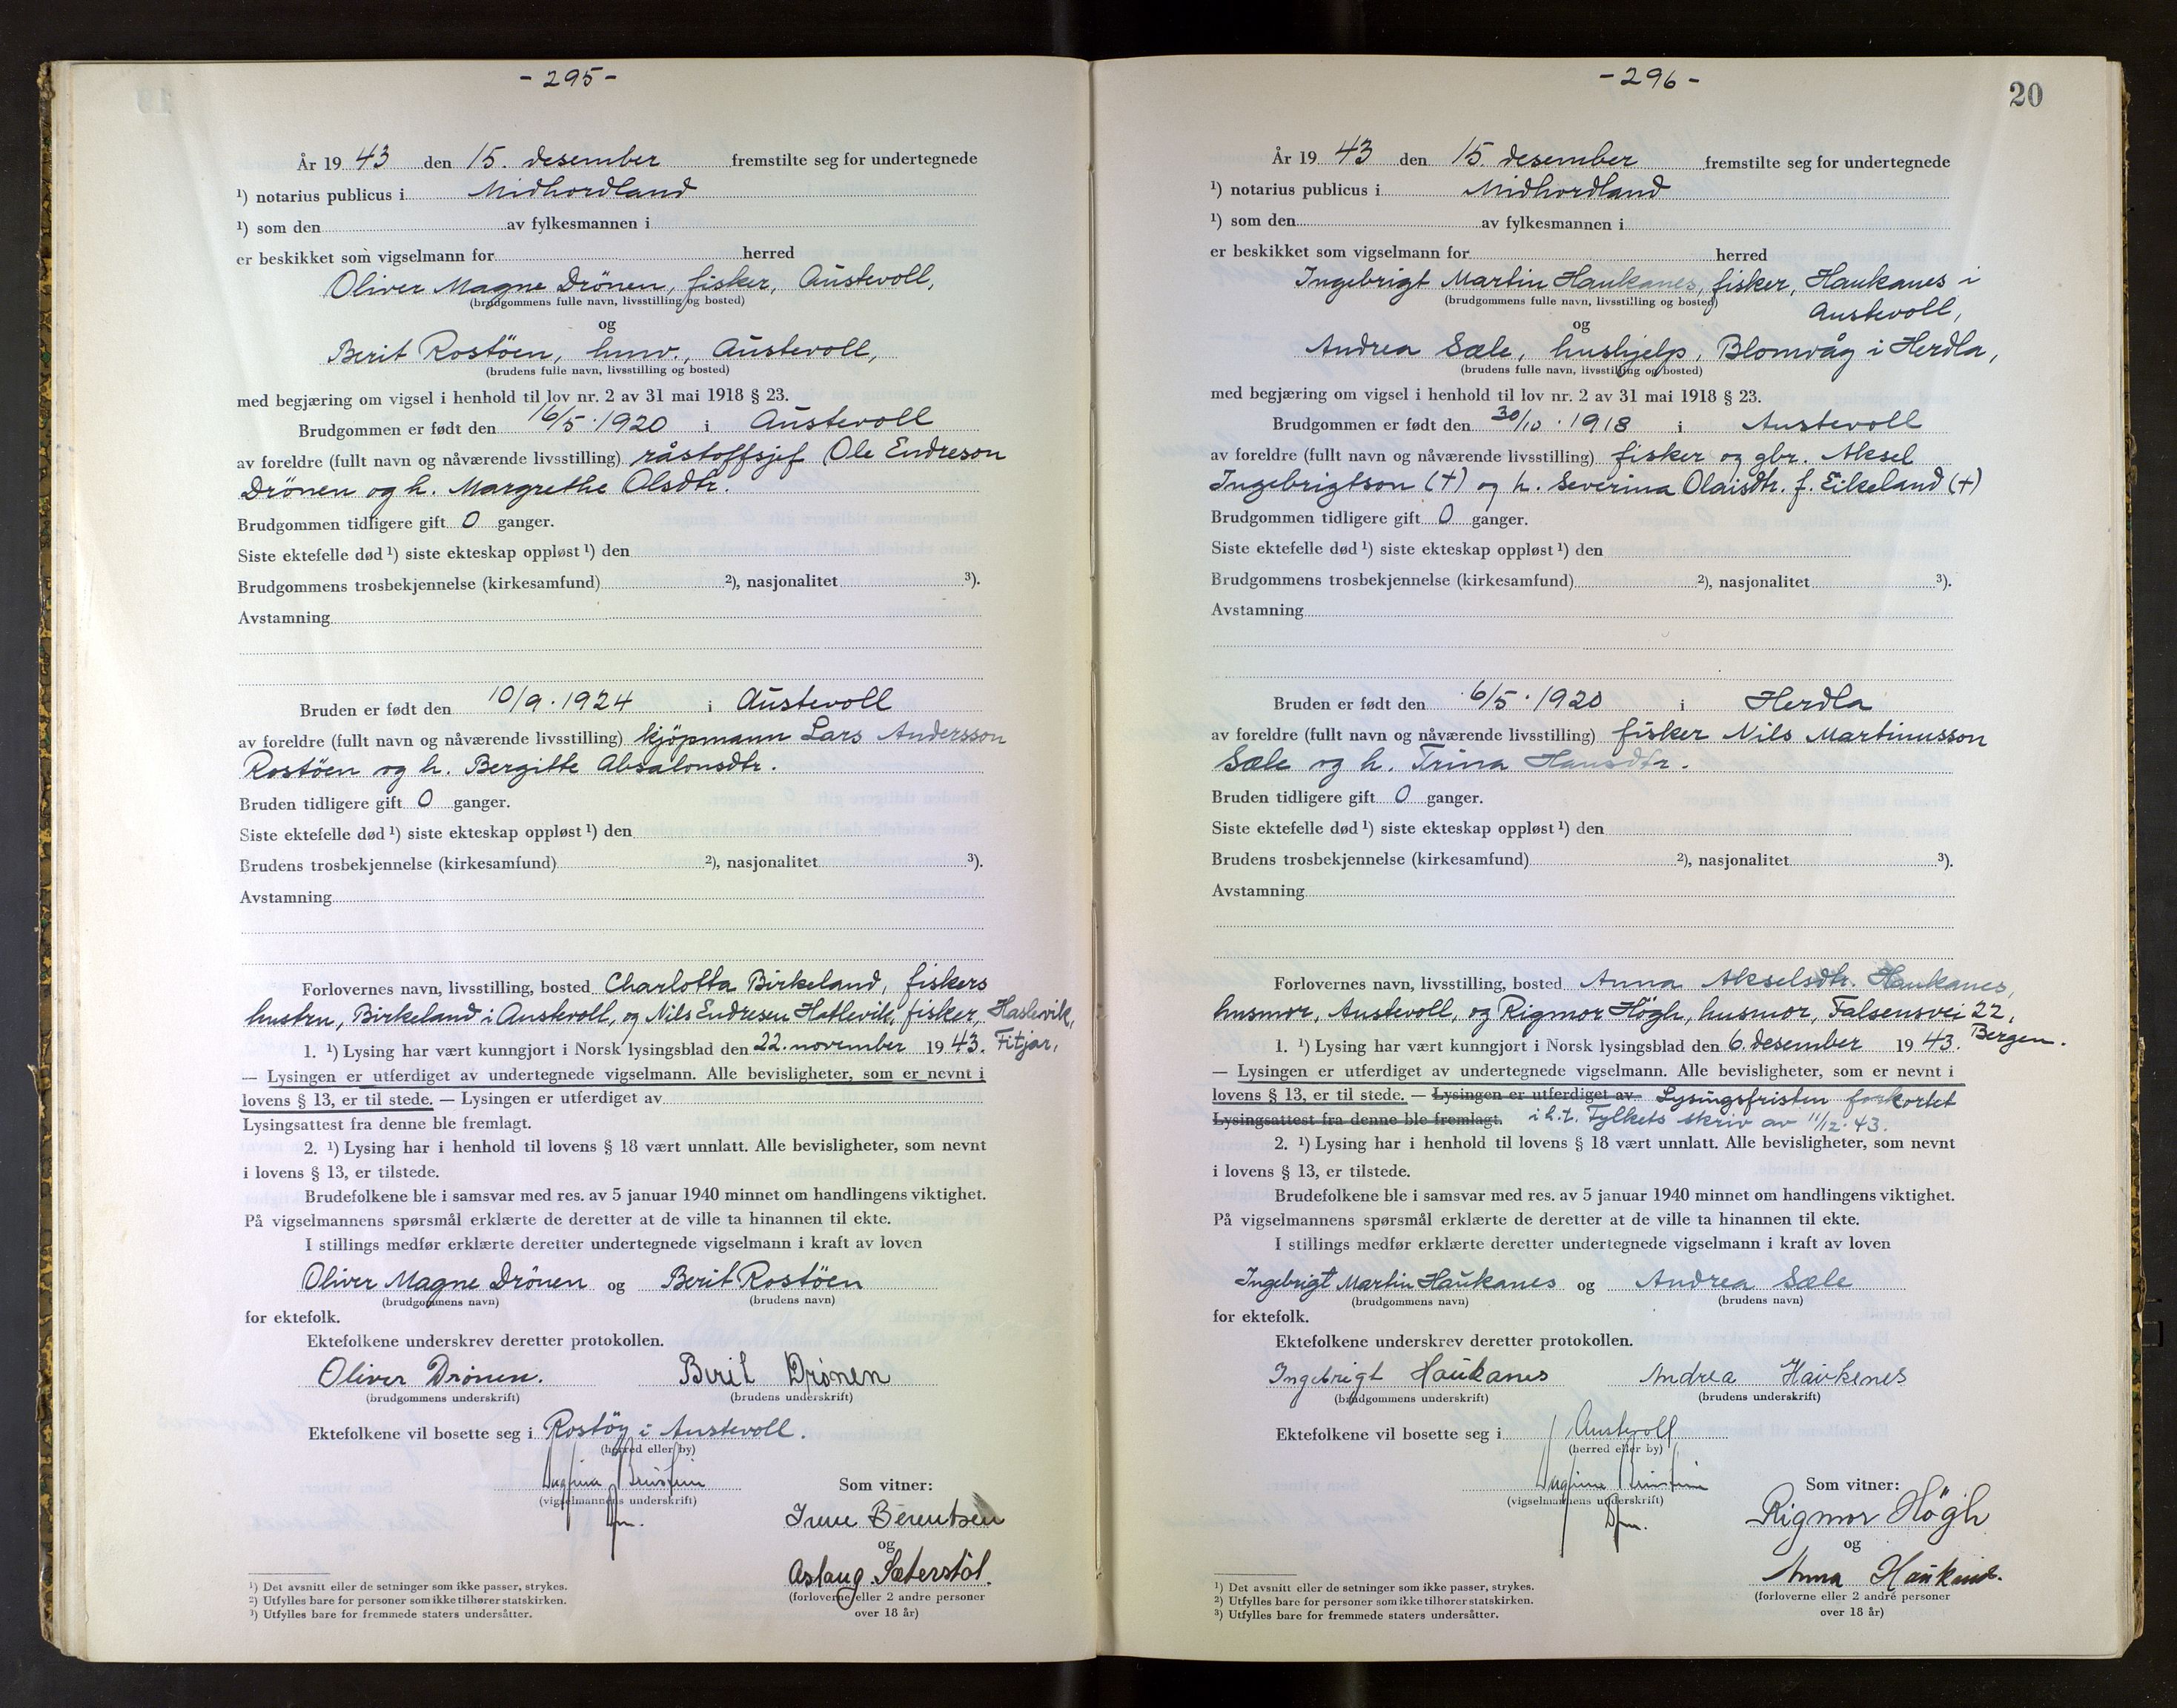 - 295 -
År 19 43 den 15. desember fremstilte seg for undertegnede
¹) notarius publicus i Midhordland
¹) som den av fylkesmannen i
er beskikket som vigselmann for herred
Oliver Magne Drönen, fisker, Austevoll,
(brudgommens fulle navn, livsstilling og bosted)
og
Berit Rostöen, hmv., Austevoll,
(brudens fulle navn, livsstilling og bosted)
med begjæring om vigsel i henhold til lov nr. 2 av 31 mai 1918 § 23.
Brudgommen er født den 16/5.1920 i Austevoll
av foreldre (fullt navn og nåværende livsstilling) råstoffsjef Ole Endreson
Drönen og h. Margrethe Olsdtr.
Brudgommen tidligere gift 0 ganger.
Siste ektefelle død ¹) siste ekteskap oppløst ¹) den
Brudgommens trosbekjennelse (kirkesamfund) ²), nasjonalitet ³).
Avstamning
Bruden er født den 10/9.1924 i Austevoll
av foreldre (fullt navn og nåværende livsstilling) kjöpmann Lars Andersson
Rostöen og h. Bergitte Absalonsdtr.
Bruden tidligere gift 0 ganger.
Siste ektefelle død ¹) siste ekteskap oppløst ¹) den
Brudens trosbekjennelse (kirkesamfund) ²), nasjonalitet ³).
Avstamning
Forlovernes navn, livsstilling, bosted Charlotta Birkeland, fiskers
hustru, Birkeland i Austevoll, og Nils Endresen Hatlevik, fisker, Haslevik,
1. ¹) Lysing har vært kunngjort i Norsk lysingsblad den 22. november 19 43. Fitjar,
— Lysingen er utferdiget av undertegnede vigselmann. Alle bevisligheter, som er nevnt i
lovens § 13, er til stede. — Lysingen er utferdiget av
Lysingsattest fra denne ble fremlagt.
2. ¹) Lysing har i henhold til lovens § 18 vært unnlatt. Alle bevisligheter, som nevnt
i lovens § 13, er tilstede.
Brudefolkene ble i samsvar med res. av 5 januar 1940 minnet om handlingens viktighet.
På vigselmannens spørsmål erklærte de deretter at de ville ta hinannen til ekte.
I stillings medfør erklærte deretter undertegnede vigselmann i kraft av loven
Oliver Magne Drönen og Berit Rostöen
(brudgommens navn) (brudens navn)
for ektefolk.
Ektefolkene underskrev deretter protokollen.
Oliver Drönen. Berit Drönen
(brudgommens underskrift) (brudens underskrift)
Ektefolkene vil bosette seg i Rostöy i Austevoll.
(herred eller by)
(vigselmannens underskrift)
Som vitner:
Irene Berentsen
og
Aslaug Sæterstöl.
(forloverne eller 2 andre personer
over 18 år)
¹) Det avsnitt eller de setninger som ikke passer, strykes.
²) Utfylles bare for personer som ikke tilhører statskirken.
³) Utfylles bare for fremmede staters undersåtter.
- 296 -
20
År 19 43 den 15. desember fremstilte seg for undertegnede
¹) notarius publicus i Midhordland
¹) som den av fylkesmannen i
er beskikket som vigselmann for herred
Ingebrigt Martin Haukanes, fisker, Haukanes i
(brudgommens fulle navn, livsstilling og bosted)
Austevoll,
og
Andrea Sæle, hushjelp, Blomvåg i Herdla,
(brudens fulle navn, livsstilling og bosted)
med begjæring om vigsel i henhold til lov nr. 2 av 31 mai 1918 § 23.
Brudgommen er født den 30/10.1918 i Austevoll
av foreldre (fullt navn og nåværende livsstilling) fisker og gbr. Aksel
Ingebrigtson (+) og h. Severina Olaisdtr. f. Eikeland (+)
Brudgommen tidligere gift 0 ganger.
Siste ektefelle død ¹) siste ekteskap oppløst ¹) den
Brudgommens trosbekjennelse (kirkesamfund) ²), nasjonalitet ³).
Avstamning
Bruden er født den 6/5.1920 i Herdla
av foreldre (fullt navn og nåværende livsstilling) fisker Nils Martinusson
Sæle og h. Trina Hansdtr.
Bruden tidligere gift 0 ganger.
Siste ektefelle død ¹) siste ekteskap oppløst ¹) den
Brudens trosbekjennelse (kirkesamfund) ²), nasjonalitet ³).
Avstamning
Forlovernes navn, livsstilling, bosted Anna Akselsdtr. Haukanes,
husmor, Austevoll, og Rigmor Högh, husmor, Falsensvei 22,
1. ¹) Lysing har vært kunngjort i Norsk lysingsblad den 6. desember 19 43. Bergen.
— Lysingen er utferdiget av undertegnede vigselmann. Alle bevisligheter, som er nevnt i
lovens § 13, er til stede. — Lysingen er utferdiget av Lysingsfristen forkortet
Lysingsattest fra denne ble fremlagt. i h.t. Fylkets skriv av 11/12.43.
2. ¹) Lysing har i henhold til lovens § 18 vært unnlatt. Alle bevisligheter, som nevnt
i lovens § 13, er tilstede.
Brudefolkene ble i samsvar med res. av 5 januar 1940 minnet om handlingens viktighet.
På vigselmannens spørsmål erklærte de deretter at de ville ta hinannen til ekte.
I stillings medfør erklærte deretter undertegnede vigselmann i kraft av loven
Ingebrigt Martin Haukanes og Andrea Sæle
(brudgommens navn) (brudens navn)
for ektefolk.
Ektefolkene underskrev deretter protokollen.
Ingebrigt Haukanes Andrea Haukenes
(brudgommens underskrift) (brudens underskrift)
Ektefolkene vil bosette seg i Austevoll
(herred eller by)
(vigselmannens underskrift)
Som vitner:
Rigmor Högh
og
Anna
(forloverne eller 2 andre personer
over 18 år)
¹) Det avsnitt eller de setninger som ikke passer, strykes.
²) Utfylles bare for personer som ikke tilhører statskirken.
³) Utfylles bare for fremmede staters undersåtter.